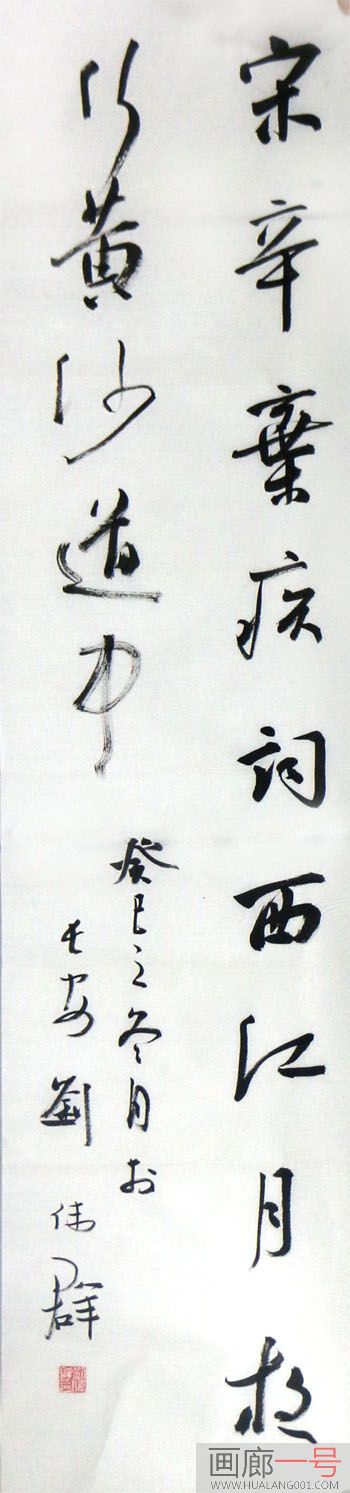 宋辛棄疾詞西江月夜
行黄沙道中
癸巳之冬月於
长安劉伟群
画廊一号
WWW.HUALANG001.COM